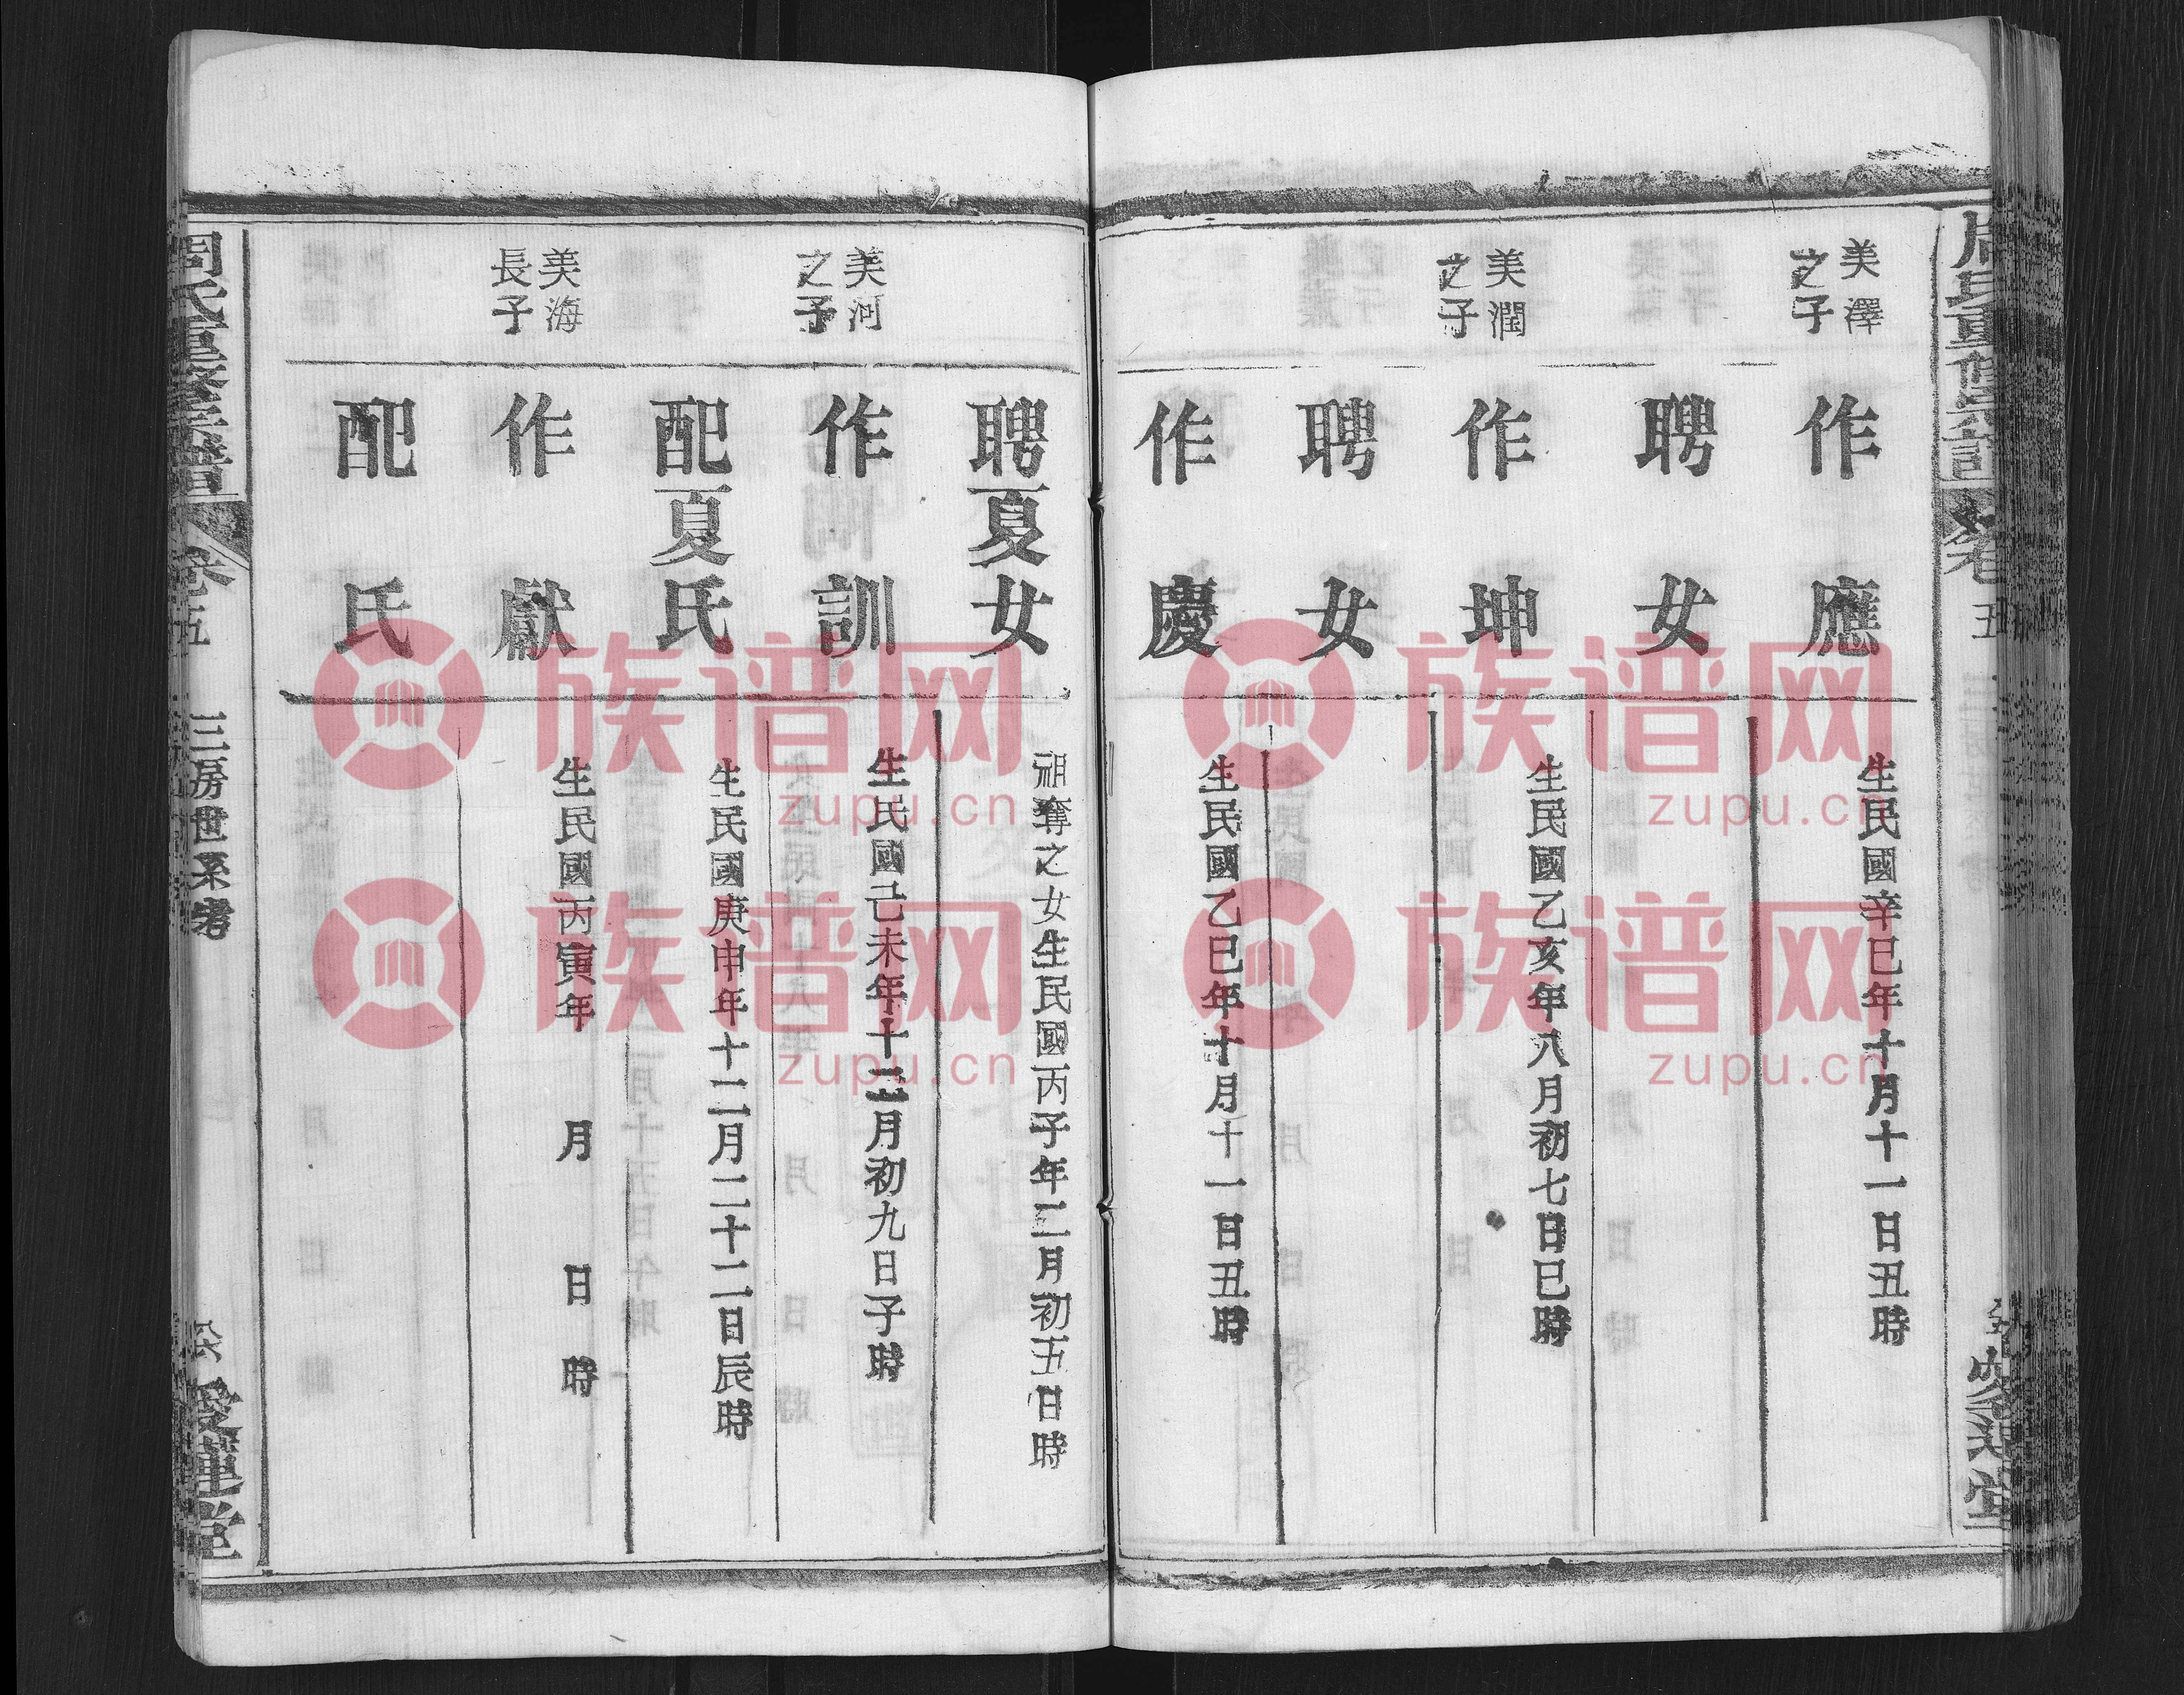 美澤
之子
作應
生民國辛巳年十月十一日丑時
聘 女
美潤
之子
作坤
生民國乙亥年八月初七日巳時
聘 女
作慶
生民國乙巳年十月十一日丑時
聘夏女
祖奪之女生民國丙子年二月初五日 時
美河
之子
作訓
生民國己未年十二月初九日子時
配夏氏
生民國庚申年十二月二十二日辰時
美海
長子
作獻
生民國丙寅年 月 日 時
配 氏
周氏重修宗譜
卷五
三房世系考
愛蓮堂
族谱网
zupu.cn
族谱网
zupu.cn
族谱网
zupu.cn
族谱网
zupu.cn